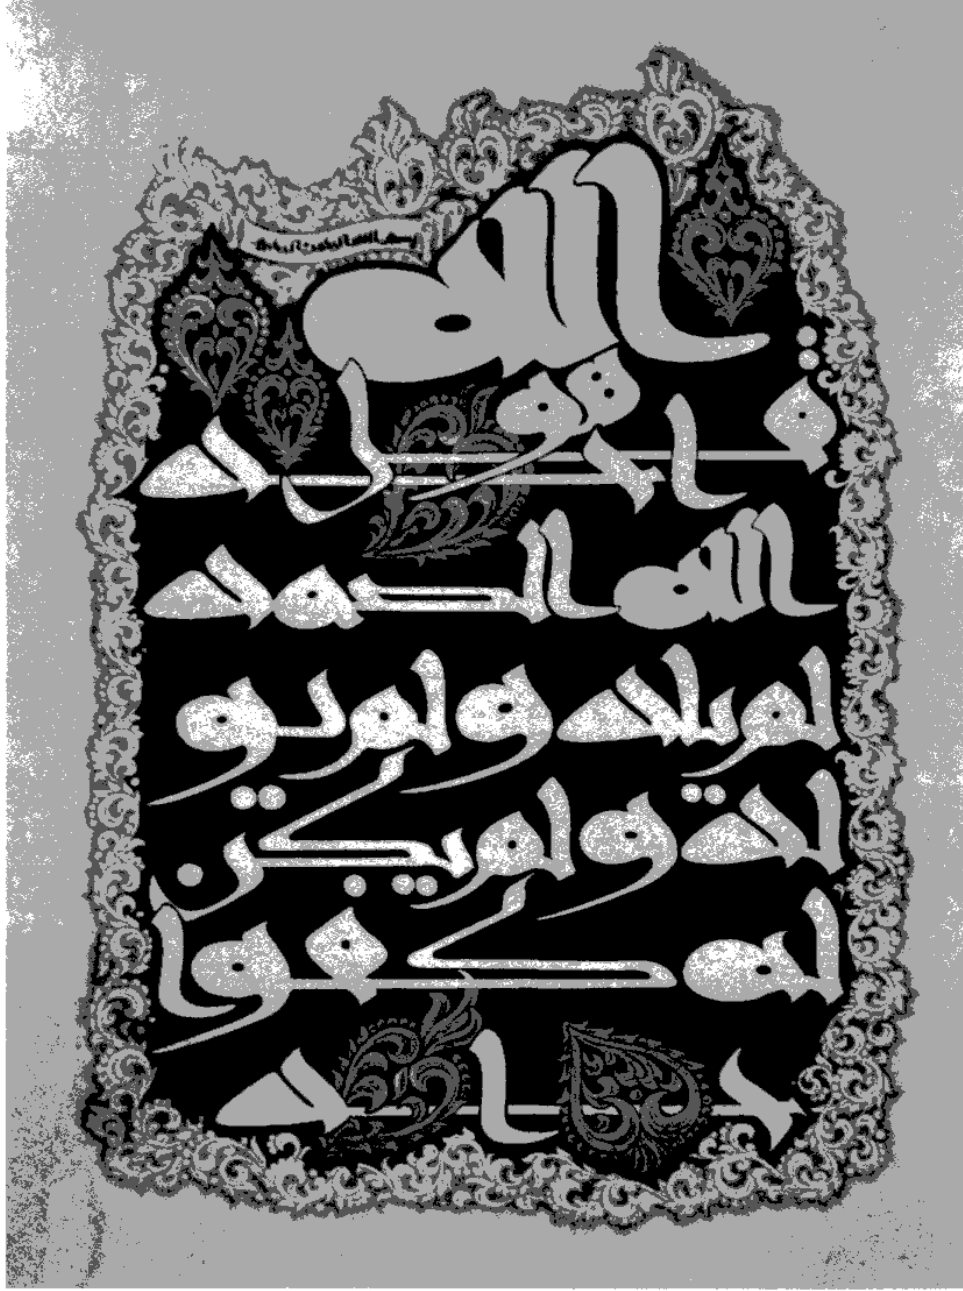 بسم الله الرحمن الرحيم
قل هو الله احد
الله الصمد
لم يلد ولم يو
لد ولم يكن
له كفوا
احد